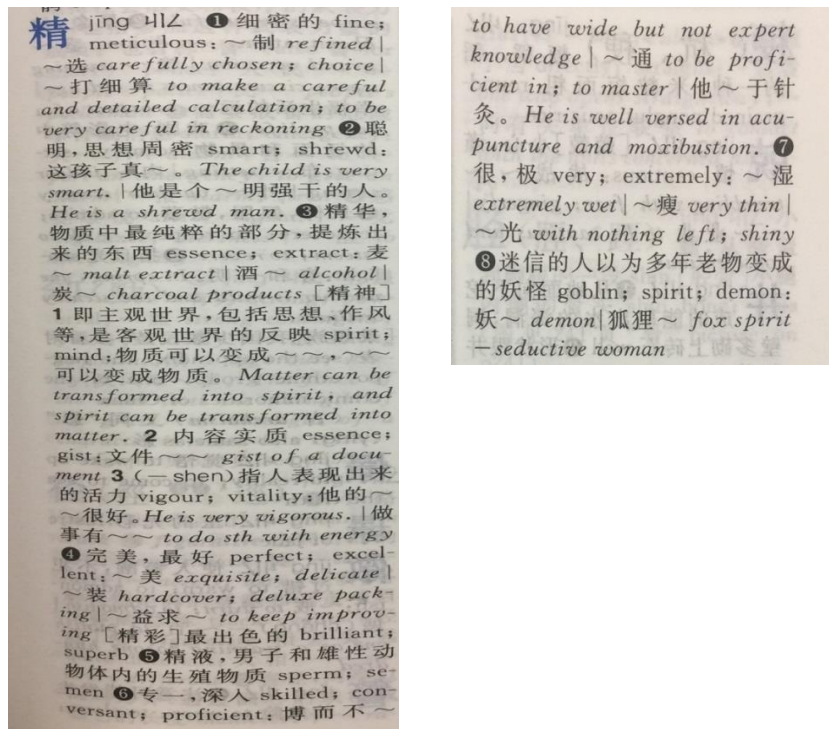 精 jīng ㄐㄧㄥ ❶细密的 fine;
meticulous: ～制 refined |
～选 carefully chosen; choice |
～打细算 to make a careful
and detailed calculation; to be
very careful in reckoning ❷聪
明,思想周密 smart; shrewd:
这孩子真～。The child is very
smart. |他是个～明强干的人。
He is a shrewd man. ❸精华,
物质中最纯粹的部分,提炼出
来的东西 essence; extract: 麦
～ malt extract |酒～ alcohol |
炭～ charcoal products [精神]
1 即主观世界,包括思想、作风
等,是客观世界的反映 spirit;
mind:物质可以变成～～,～～
可以变成物质。Matter can be
transformed into spirit, and
spirit can be transformed into
matter. 2 内容实质 essence;
gist:文件～～ gist of a docu-
ment 3 (— shen)指人表现出来
的活力 vigour; vitality:他的～
～很好。He is very vigorous. |做
事有～～ to do sth with energy
❹完美,最好 perfect; excel-
lent:～美 exquisite; delicate |
～装 hardcover; deluxe pack-
ing |～益求～ to keep improv-
ing [精彩]最出色的 brilliant;
superb ❺精液,男子和雄性动
物体内的生殖物质 sperm; se-
men ❻专一,深入 skilled; con-
versant; proficient: 博而不～
to have wide but not expert
knowledge | ～通 to be profi-
cient in; to master |他～于针
灸。He is well versed in acu-
puncture and moxibustion. ❼
很,极 very; extremely: ～湿
extremely wet |～瘦 very thin |
～光 with nothing left; shiny
❽迷信的人以为多年老物变成
的妖怪 goblin; spirit; demon:
妖～ demon|狐狸～ fox spirit
— seductive woman